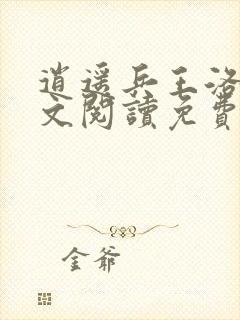 逍遥兵王洛
文閱讀免費
金爺